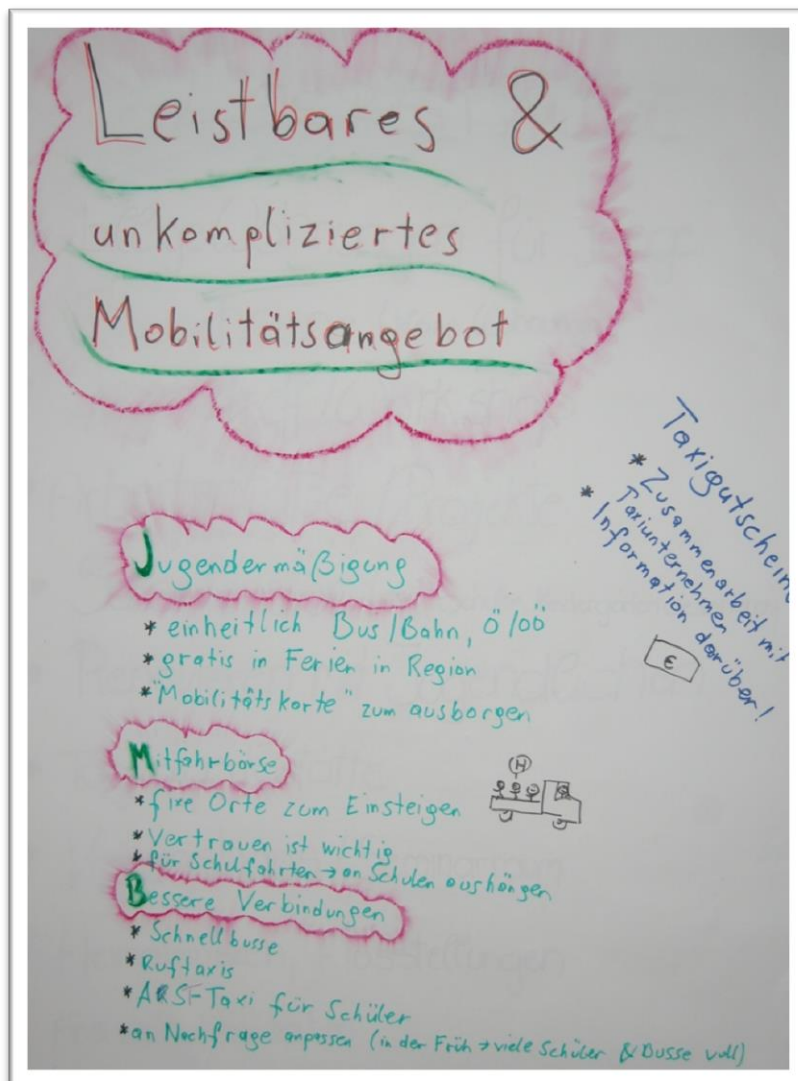 Leistbares &
unkompliziertes
Mobilitätsangebot
Taxigutscheine
* Zusammenarbeit mit
Taxiunternehmen
* Information darüber!
€
Jugendermäßigung
* einheitlich Bus/Bahn, Ö/OÖ
* gratis in Ferien in Region
* "Mobilitätskarte" zum ausborgen
Mitfahrbörse
H
* fixe Orte zum Einsteigen
* Vertrauen ist wichtig
* für Schulfahrten → an Schulen aushängen
Bessere Verbindungen
* Schnellbusse
* Ruftaxis
* Taxi für Schüler
* an Nachfrage anpassen (in der Früh → viele Schüler & Busse voll)